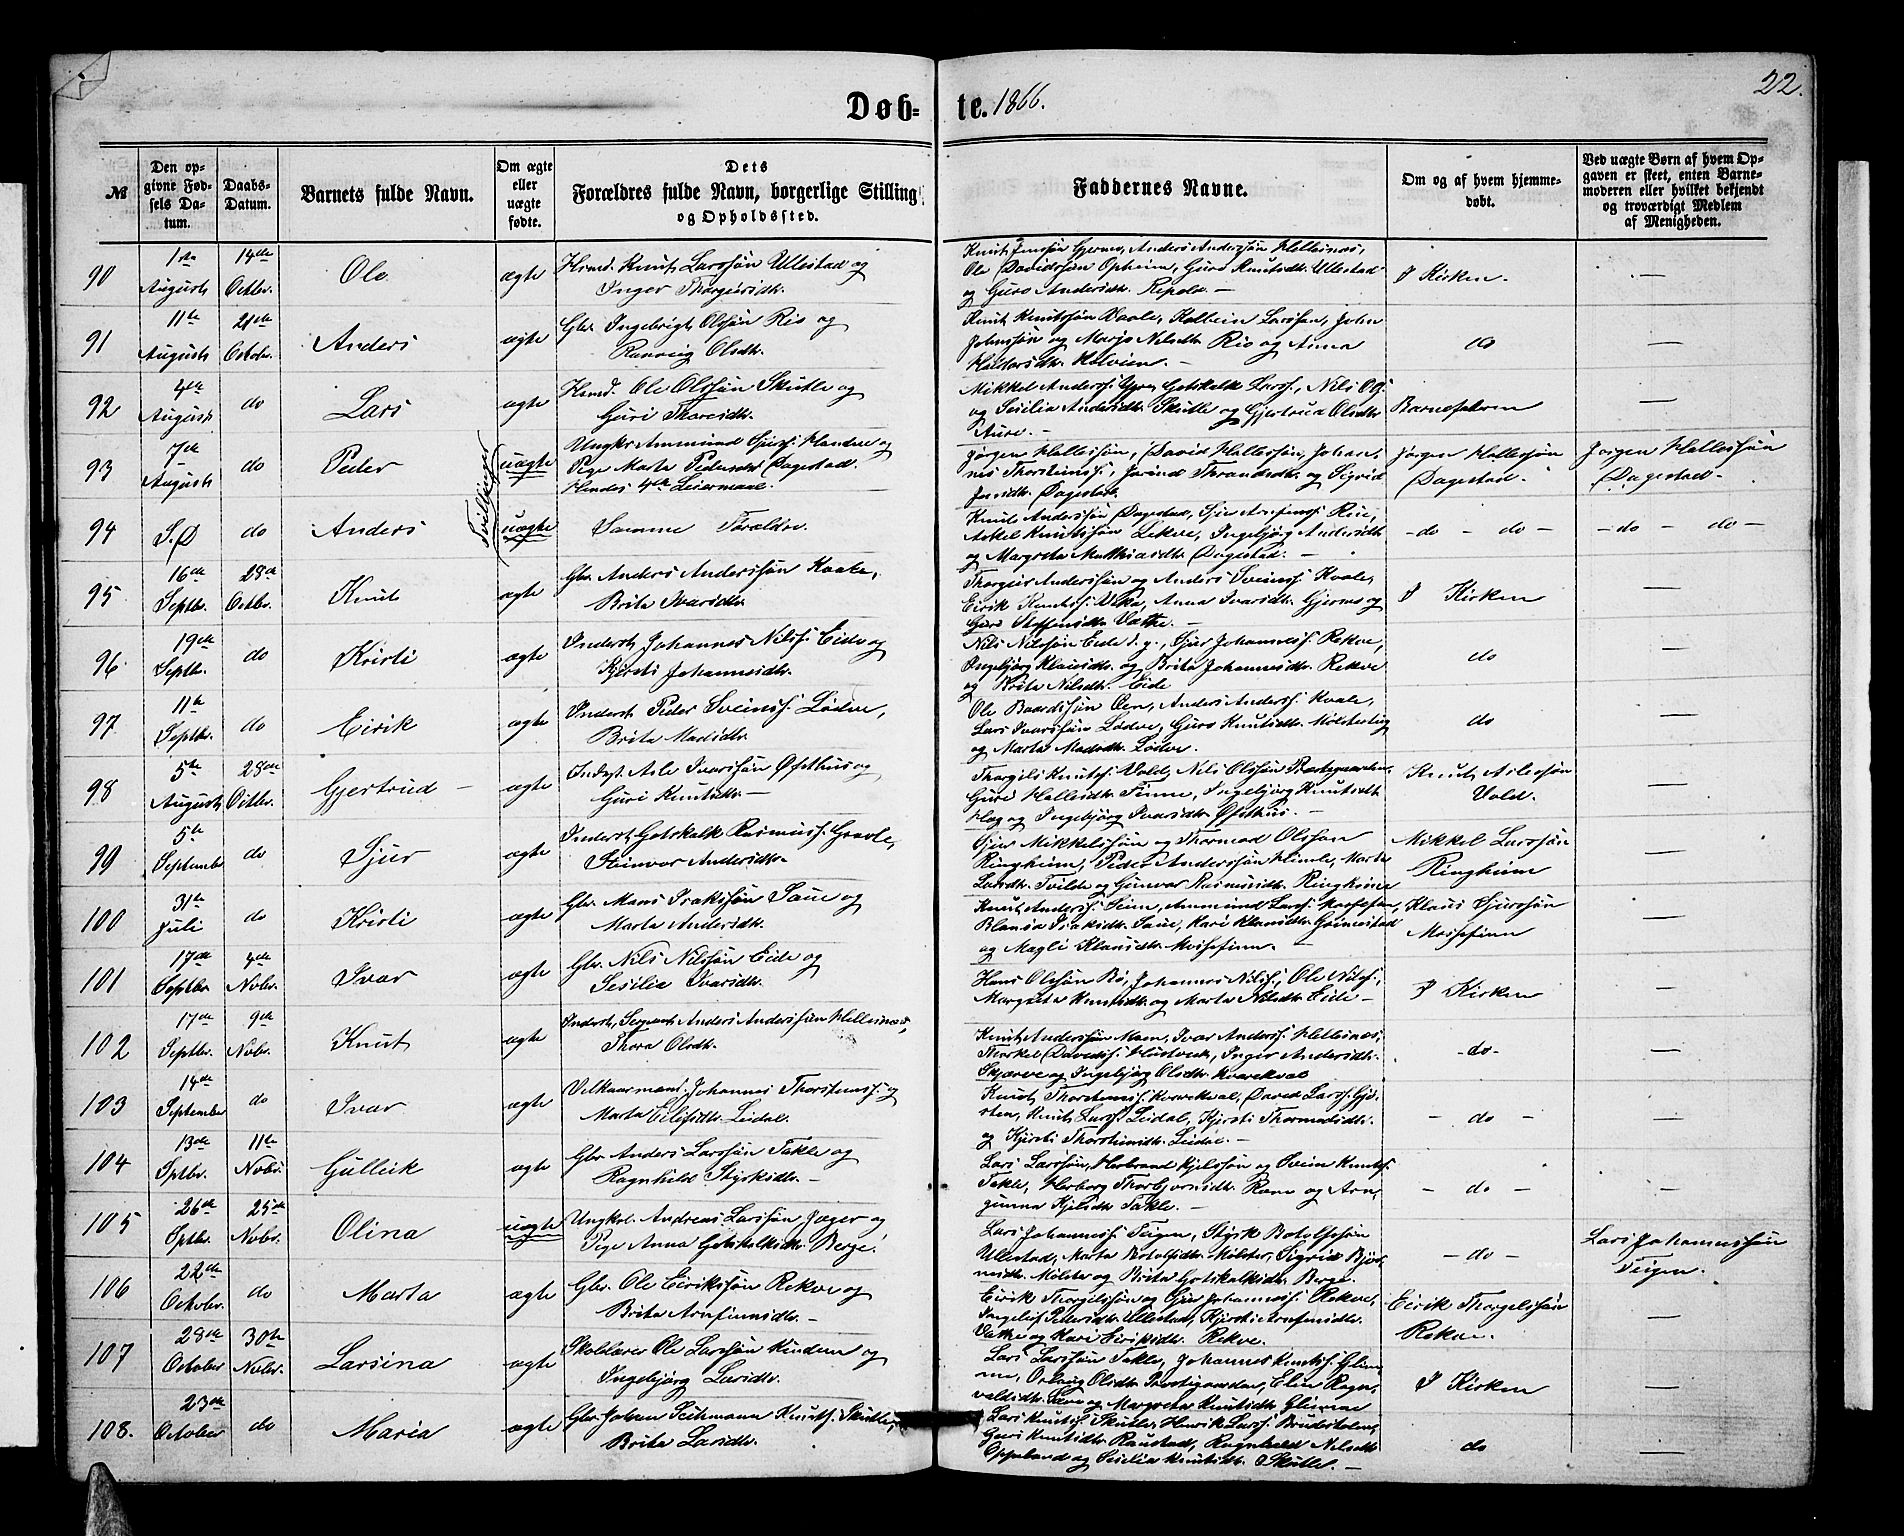 22.
Døb- te. 1866.
№
Den opgivne Fødsels Datum.
Daabs-Datum.
Barnets fulde Navn.
Om ægte eller uægte fødte.
Dets
Forældres fulde Navn, borgerlige Stilling
og Opholdssted.
Faddernes Navne.
Om og af hvem hjemmedøbt.
Ved uægte Børn af hvem Opgaven er skeet, enten Barnemoderen eller hvilket bekjendt og troværdigt Medlem af Menigheden.
90 1ste August 14de Octbr. Ole ægte Hsmd. Knut Larssøn Ullestad og
Inger Thorgeirsdtr.
Knut Jenssøn Gjerme, Anders Anderssøn Hellesnes,
Ole Davidssøn Opheim, Guro Knutsdtr. Ullestad
og Guro Andersdtr. Repole. —
I Kirken. —
91 11te August 21de Octobr. Anders ægte Gbr. Ingebrigt Olssøn Rio og
Ranveig Olsdtr.
Knut Knutssøn Kvale, Kolbein Larsson, John
Johnssøn og Marjo Nilsdtr. Rio og Anna
Haldorsdtr. Holvien. —
do —
92 4de August do Lars ægte Hsmd. Ole Olssøn Skutle og
Guri Thoresdtr.
Mikkel Anderss: Gotskalk Larss:, Nils Og:
og Sesilia Andersdtr. Skutle og Gjertrud Olsdtr
Aure. —
Barnefaderen —
93 7de August do Peder uægte Ungkr. Ammund Sjurs: Handve og
Pige Marta Pedersdtr Dagestad.
Hendes 4de Leiermaal.
Jørgen Hellessøn, David Hellessøn, Johan-
nes Thorsteinss:, Jorånd Throndsdtr. og Sigrid
Jonsdtr. Dagestad.
Jørgen Hellessøn
Dagestad.
Jørgen Hellessøn
Dagestad.
Tvillinger
94 S.D do Anders uægte Samme Forældre.
Knut Anderssøn Dagestad, Sjur Arnfinss: Rio,
Askel Knutssøn Lekve, Ingebjørg Andersdtr
og Margreta Matthiasdtr. Dagestad. —
— do — do — — do — do —
95 16de Septbr. 28de Octbr. Knut ægte Gbr. Anders Anderssøn Kvale,
Brita Ivarsdtr
Thorgeir Anderssøn og Anders Sveinss: Kvale,
Eirik Knutss: Væka, Anna Ivarsdtr. Gjerme og
Guri Steffensdtr. Vætte. —
I Kirken —
96. 19de Septbr. do Kristi ægte Inderst, Johannes Nilss: Eide og
Kjersti Johannesdtr.
Nils Nilssøn Eide d. y., Sjur Johanness: Rekve,
Ingebjørg Klausdtr. og Brita Johannesdtr. Rekve
og Brita Nilsdtr. Eide
do —
97. 11te Septbr. do Eirik ægte Inderst, Peder Sveinss: Lødve,
Brita Madsdtr.
Ole Baardssøn Øen, Anders Anderss: Kvale,
Lars Ivarssøn Lødve, Guro Knutsdtr. Mølsterteig
og Marta Madsdtr. Lødve.
do —
98 5te August 28de Octbr. Gjertrud — ægte Indst. Asle Ivarssøn Øfsthus og
Guri Knutsdtr. —
Thorgils Knutss: Vold, Nils Olssøn Prestegaarden,
Guri Hellesdtr. Finne, Ingebjørg Knutsdtr.
Hæg og Ingebjørg Ivarsdtr. Øfsthus. —
Knut Aslessøn
Vold. —
99 5te September do Sjur ægte Inderst, Gotskalk Rasmuss: Gravle,
Steinvor Andersdtr.
Sjur Mikkelssøn og Thormod Olsson
Ringheim, Peder Anderssøn Himle, Marta
Larsdtr. Tvilde og Gunvor Rasmusdtr. Ringheim
Mikkel Larssøn
Ringheim —
100 31te Juli do Kristi ægte Gbr. Mons Isakssøn Saue og
Marta Andersdtr.
Knut Anderss: Seim, Ammund Larss: Mossefin,
Blansa Isaksdtr. Saue, Kari Klausdtr. Grimestad
og Magli Klausdtr. Mossefinn. —
Klaus Sjurssøn
Mossefinn —
101 17de Septbr. 4de Novbr. Ivar ægte Gbr. Nils Nilssøn Eide og
Sesilia Ivarsdtr.
Hans Olssøn Bø, Johannes Nilss:, Ole Nilss:,
Margreta Knutsdtr. og Marta Nilsdtr. Eide —
I Kirken —
102 17de Septbr. 9de Novbr. Knut ægte Inderst, Sergeant Anders Anderssøn Hellesnes,
Thora Olsdtr.
Knut Anderssøn Moen, Ivar Anderss: Hellesnes,
Thorkel Davidss: Hustveit, Inger Andersdtr.
Skjærve og Ingebjørg Olsdtr. Kvarekval
- do - —
103 14de September do Ivar ægte Velkaarmand. Johannes Thorsteinss: og
Marta Eilifsdtr. Leidal.
Knut Thorsteinss: Kvarekval, David Larss: Gjer-
sten, Knut Larss: Leidal, Kjersti Thormodsdtr.
og Kjersti Thorsteinsdtr. Leidal. —
— do — —
104 13de Sptbr. 11te Novbr Gulleik ægte Gbr. Anders Larssøn Takle og
Ragnhild Styrksdtr. —
Lars Larssøn, Herbrand Kjelssøn og Svein Knutss:
Takle, Herborg Thorbjørnsdtr. Røne og Arn-
gunna Kjelsdtr. Takle. —
— do — —
105 26de Sptbr. 25de Novbr. Olina uægte Ungkrl. Andreas Larssøn Jæger og
Pige Anna Gotskalksdtr. Berge.
Lars Johanness: Teigen, Styrk Botolfssøn
Ullestad, Marta Botolfsdtr. Mølster, Sigrid Bjør-
nsdtr. Mølster og Brita Gotskalksdtr. Berge.
— do —
Lars Johannessøn
Teigen.
106 22de Octobr. do Marta ægte Gbr. Ole Eirikssøn Rekve og
Brita Arnfinnsdtr. —
Eirik Thorgilssøn og Sjur Johanness: Rekve,
Ingeleif Pedersdtr. Ullestad, Kjersti Arnfinsdtr.
Vætte og Kari Eiriksdtr. Rekve.
Eirik Thorgelssøn
Rekve. —
107 28de October 30te Novbr. Larsina ægte Skolelærer Ole Larssøn Kindem og
Ingebjørg Larsdtr.
Lars Larssøn Takle, Johannes Knutss: Glim-
me, Orlaug Olsdtr. Prestegaarden, Elin Ragn-
valdsdtr. Tære og Margreta Knutsdtr Glimme
I Kirken —
108. 23de October do Maria ægte Gbr. Johan Seihmann Knutss: Skutle,
Brita Larsdtr.
Lars Knutss: Skutle, Henrik Larss: Bruderholen,
Guri Knutsdtr. Raustad, Ragnhild Nilsdtr.
Oppeland og Sesilia Knutsdtr. Skutle. —
do —